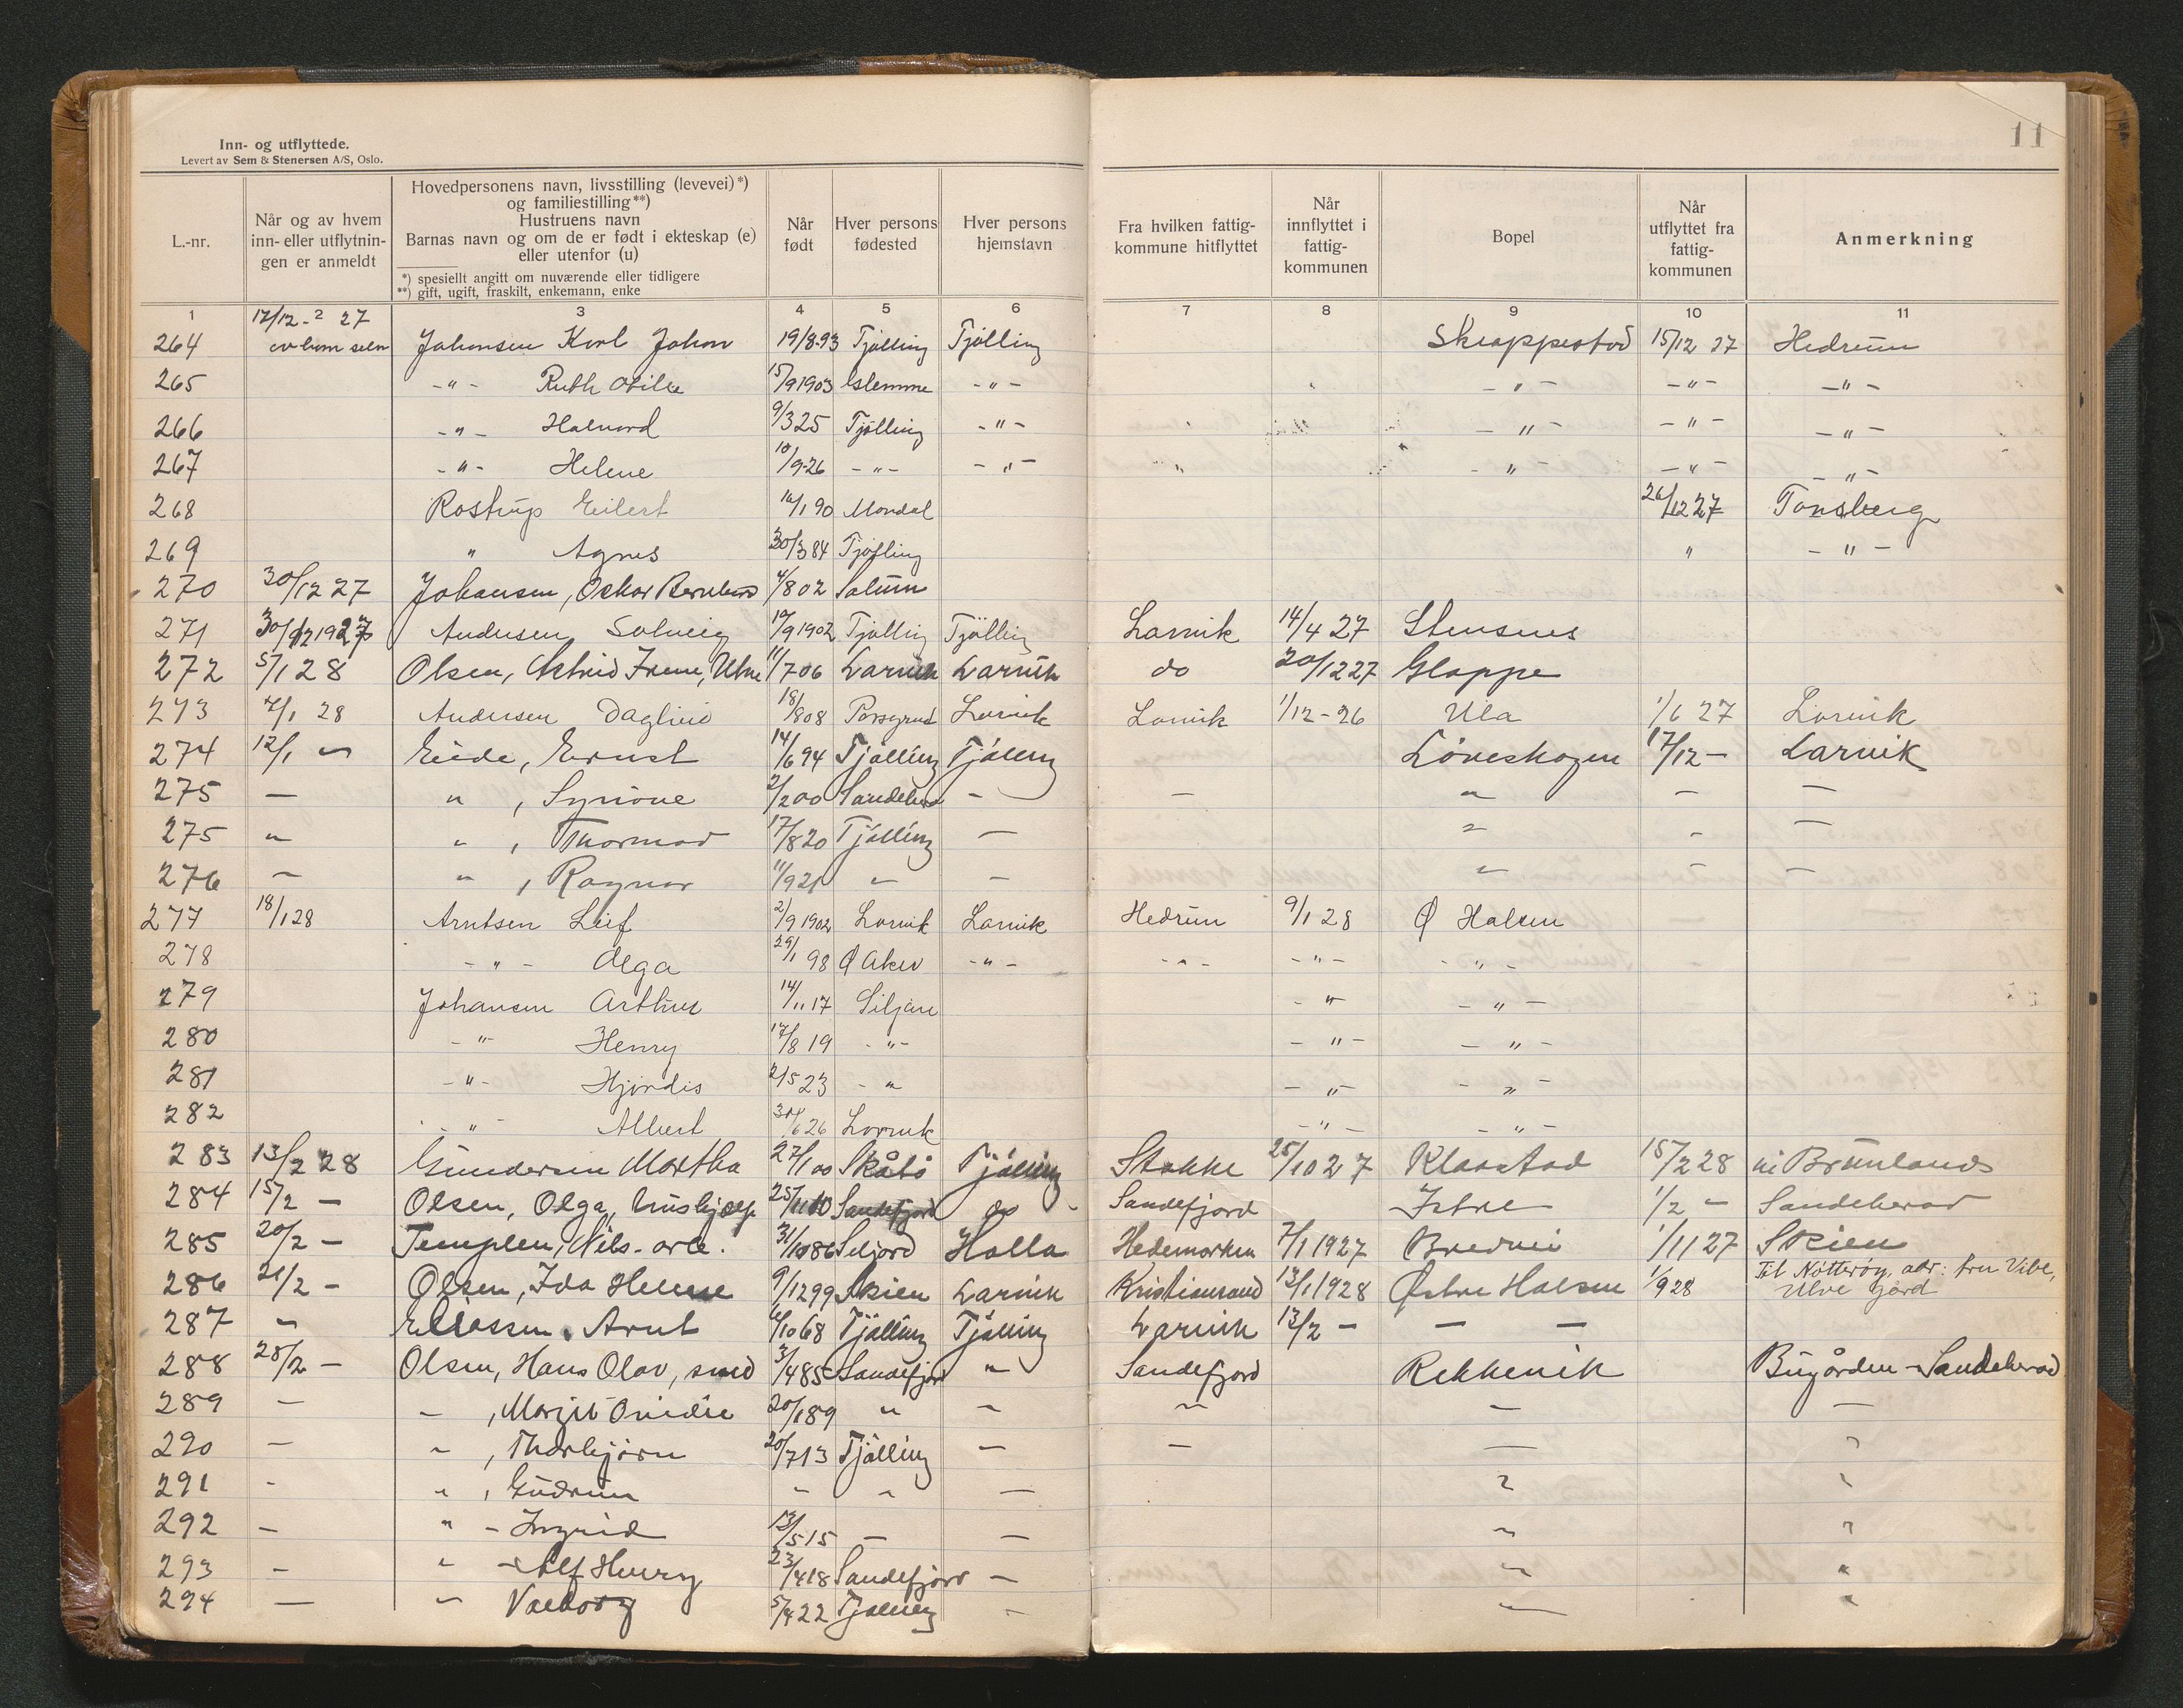 11
Inn- og utflyttede.
Levert av Sem & Stenersen A/S, Oslo.
L.-nr.
Når og av hvem
inn- eller utflytnin-
gen er anmeldt
Hovedpersonens navn, livsstilling (levevei)*)
og familiestilling**)
Hustruens navn
Barnas navn og om de er født i ekteskap (e)
eller utenfor (u)
*) spesiellt angitt om nuværende eller tidligere
**) gift, ugift, fraskilt, enkemann, enke
Når
født
Hver persons
fødested
Hver persons
hjemstavn
Fra hvilken fattig-
kommune hitflyttet
Når
innflyttet i
fattig-
kommunen
Bopel
Når
utflyttet fra
fattig-
kommunen
Anmerkning
1 2 3 4 5 6 7 8 9 10 11
17/12 - 27
264 av ham selv Johansen Karl Johan 19/8-93 Tjølling Tjølling Skrappestad 15/12 27 Hedrum
265 -"- Ruth Otilie 15/9 1903 Glemme -"- -"- -"- -"-
266 -"- Halvard 9/3 25 Tjølling -"- -"- -"- -"-
267 -"- Helene 10/9-26 -"- -"- " -"- -"- -"-
268 Rostrup Eilert 14/1 90 Mandal 26/12 27 Tønsberg
269 " Agnes 30/3 84 Tjølling " -"-
270 30/12 27 Johansen, Oskar 4/8 02 Solum
271 30/12 1927 Andersen Solveig 19/9 1902 Tjølling Tjølling Larvik 14/4 27 Stensnes
272 5/1 28 Olsen, Astrid Irene, 11/7 06 Larvik Larvik do 20/12 27 Gloppe
273 7/1 28 Andersen Dagliv 18/8 08 Porsgrund Larvik Larvik 1/12-26 Ula 1/6 27 Larvik
274 12/1 " Eide, Ernst 14/6 94 Tjølling Tjølling Løveskogen 17/12 - Larvik
275 — " , Synnøve 2/2 00 Sandeherd - — " — —
275 " " , Thormod 17/8 20 Tjølling — " - —
276 — " , Ragnar 11/9 21 " — " - —
277 18/1 28 Arntsen Leif 2/9 1902 Larvik Larvik Hedrum 9/1 28 Ø Halsen
278 -"- Olga 29/1 98 Ø Aker -"- -"- -"- -"-
279 Johansen Arthur 14/11 17 Siljan -"- -"-
280 -"- Henry 17/8 19 -"- -"- -"-
281 -"- Hjørdis 2/5 23 -" -"- -"-
282 -"- Albert 30/6 26 Larvik -"- -"-
283 13/2 28 Gundersen Martha 27/1 00 Skåtø Tjølling Stokke 25/10 27 Klaastad 15/2 28 Brunlanes
284 15/2 - Olsen, Olga, hushjelp 25/11 10 Sandefjord do Sandefjord Istre 1/2 - Sandeherad
285 20/2 - Templen, Nils - arb. 31/10 86 Seljord Holla Hedemarken 7/1 1927 Bredvei 1/11 27 Skien
286 21/2 - Olsen, Ida Helene 9/12 99 Skien Larvik Kristiansand 13/1 1928 Østre Halsen 1/9 28 Til Nøtterøy, adr: fru Vibe,
Ulve Gård
287 " Eliassen, Arnt 6/10 68 Tjølling Tjølling Larvik 13/2 - — —
288 28/2 - Olsen, Hans Olav, smed 3/4 85 Sandefjord " Sandefjord Rekkevik Bugården - Sandeherad
289 - - , Margit Ovidie 20/1 89 " - " — —
290 — " , Thorbjørn 20/7 13 Tjølling — — — "
291 - " , Gudrun - - — " "
292 — " - Ingrid 13/5 15 — — " "
293 - " - Alf Henry 23/4 18 Sandefjord — " "
294 — " Valborg 5/4 22 Tjølling - — "